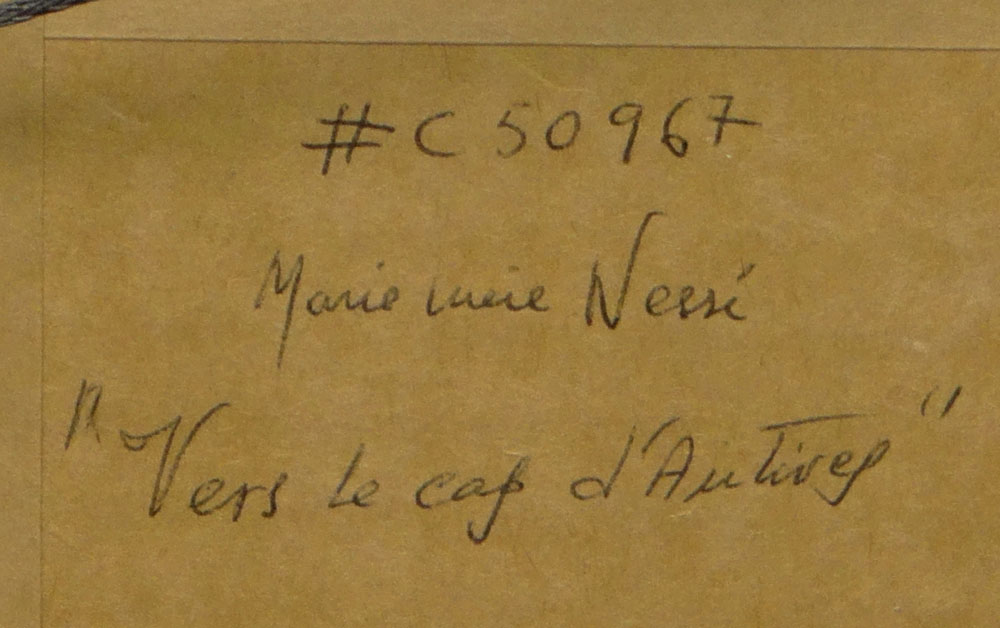 #C 50967
Marie Lucie Nessi
"Vers le cap d'Antibes"